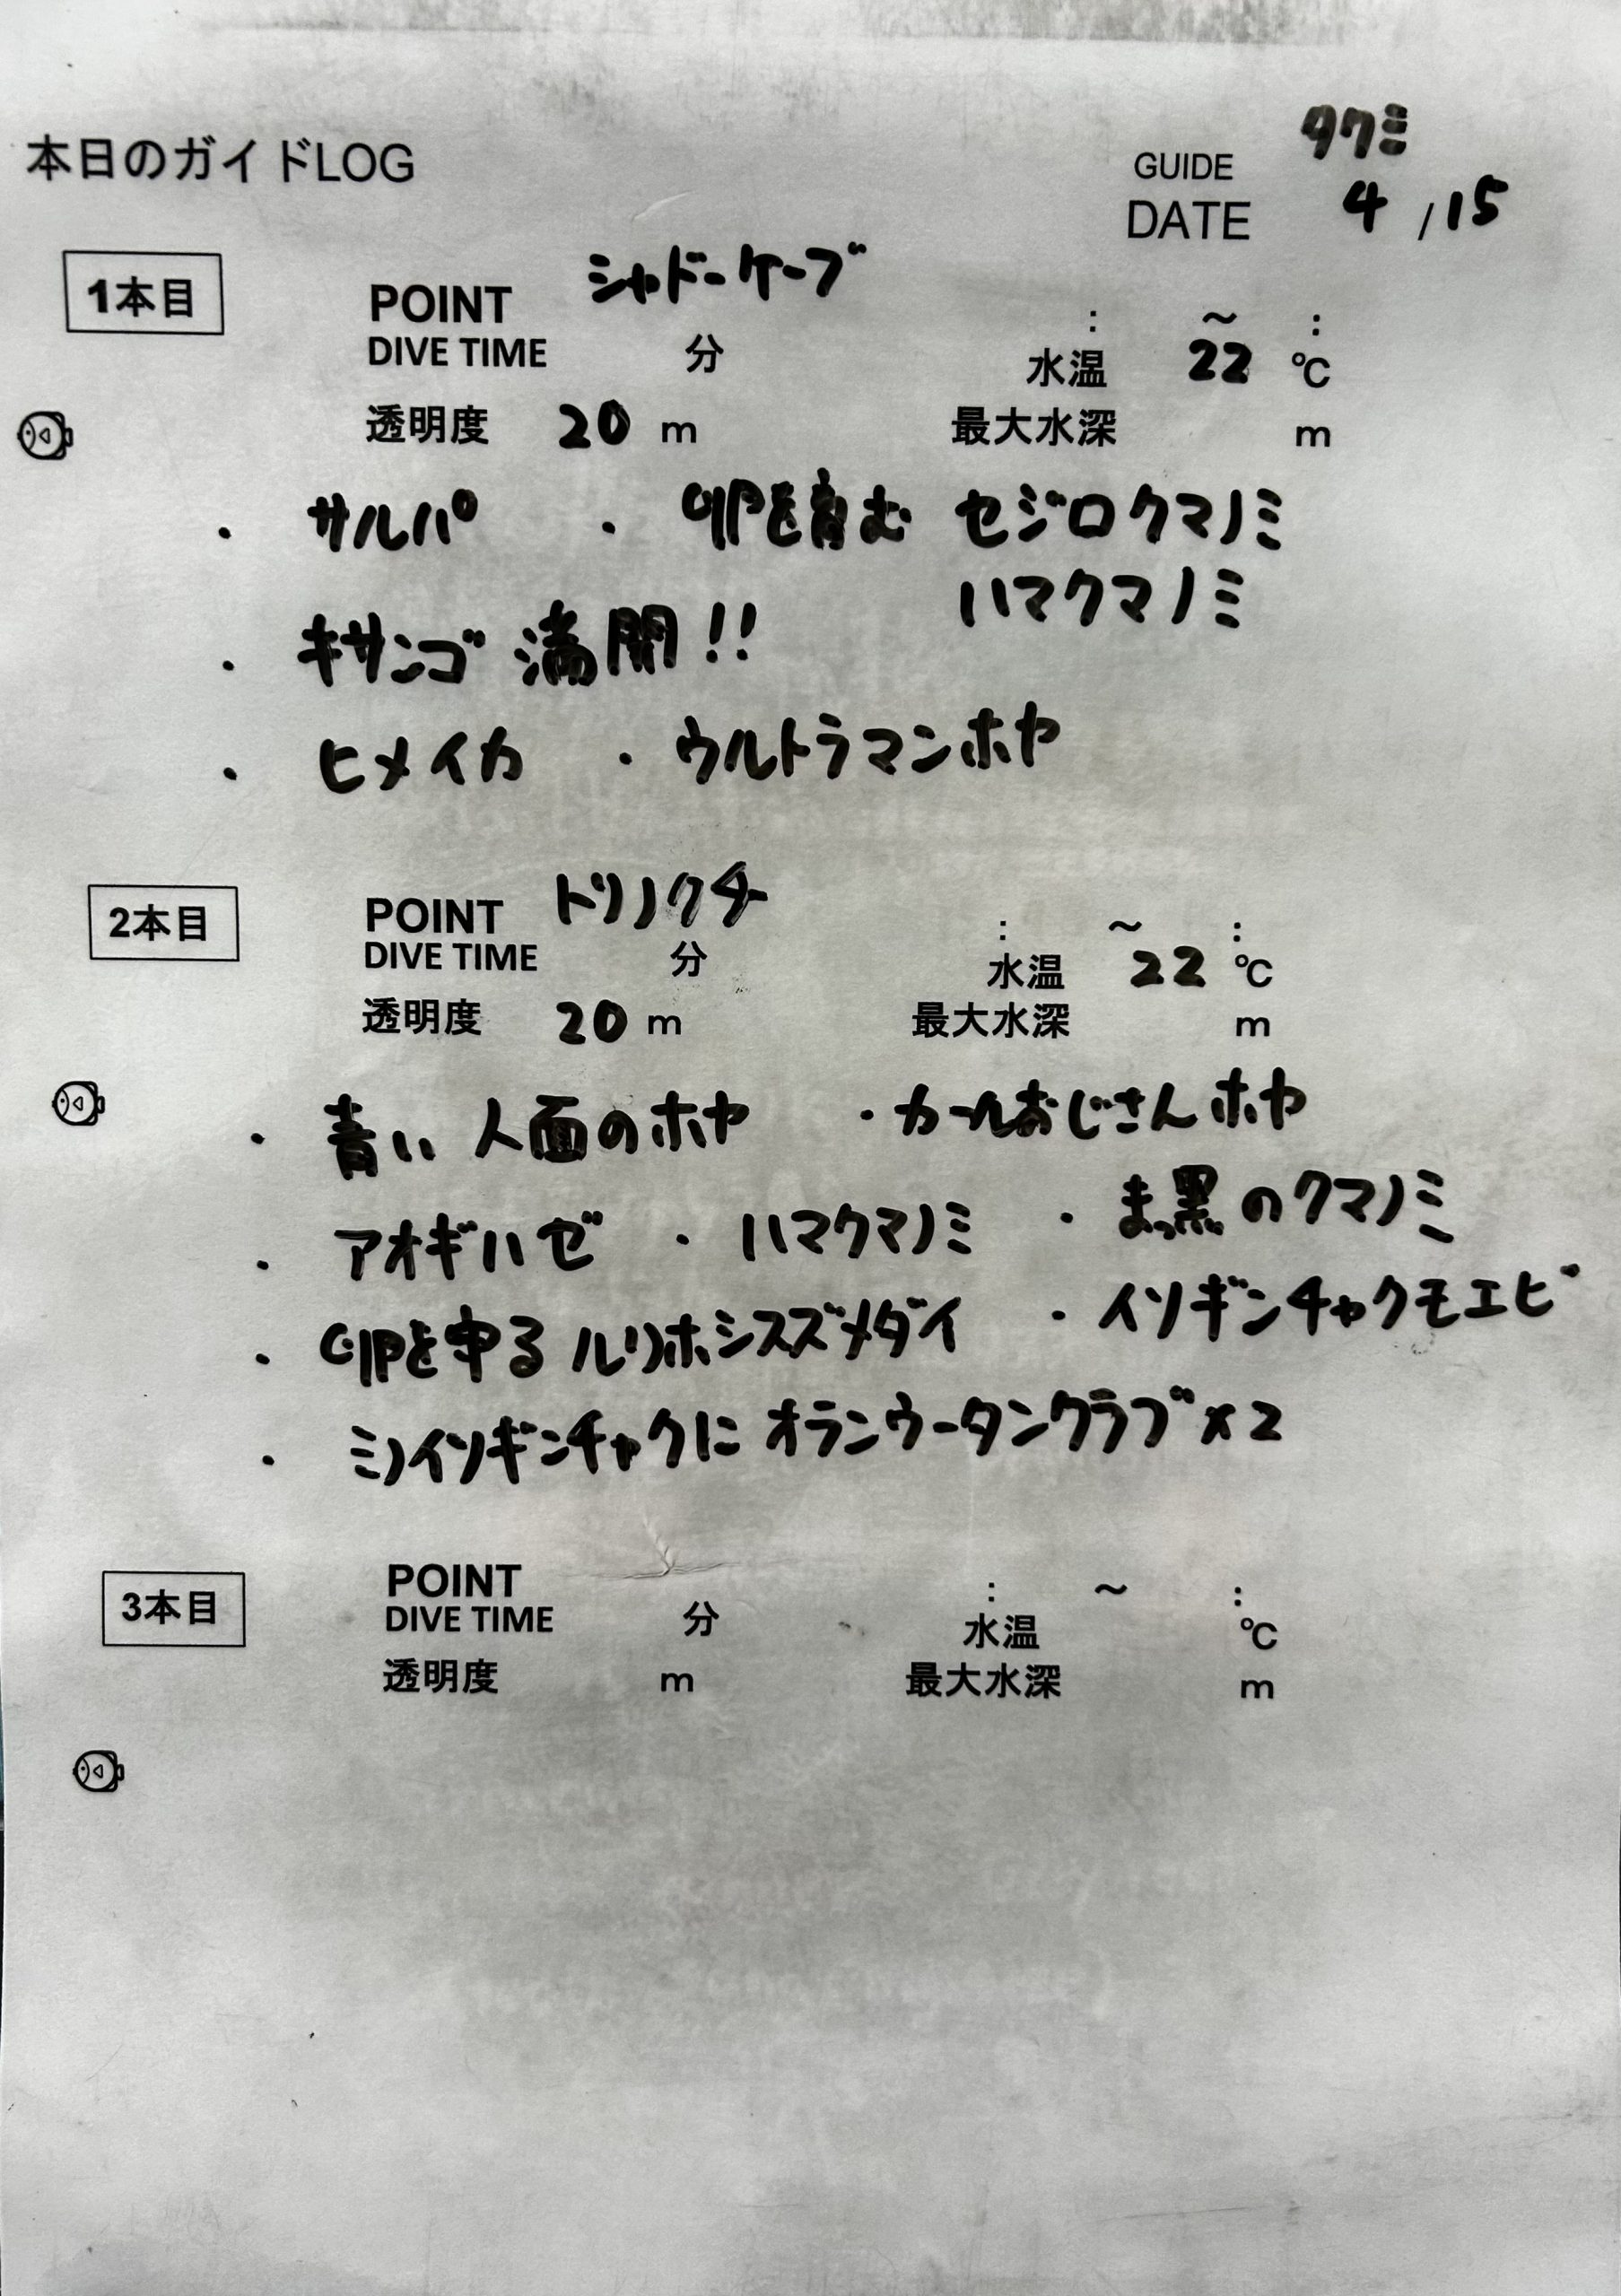 本日のガイドLOG
GUIDE タクミ
DATE 4/15
1本目
POINT シャドーケーブ
: ～ :
DIVE TIME 分 水温 22 ℃
透明度 20 m 最大水深 m
・サルパ ・卵を育む セジロクマノミ
ハマクマノミ
・キサンゴ 満開!!
・ヒメイカ ・ウルトラマンホヤ
2本目
POINT トリノクチ
: ～ :
DIVE TIME 分 水温 22 ℃
透明度 20 m 最大水深 m
・青い人面のホヤ ・カールおじさんホヤ
・アオギハゼ ・ハマクマノミ ・まっ黒のクマノミ
・卵を守る ルリホシスズメダイ ・イソギンチャクモエビ
・ミノイソギンチャクに オランウータンクラブ×2
3本目
POINT : ～ :
DIVE TIME 分 水温 ℃
透明度 m 最大水深 m